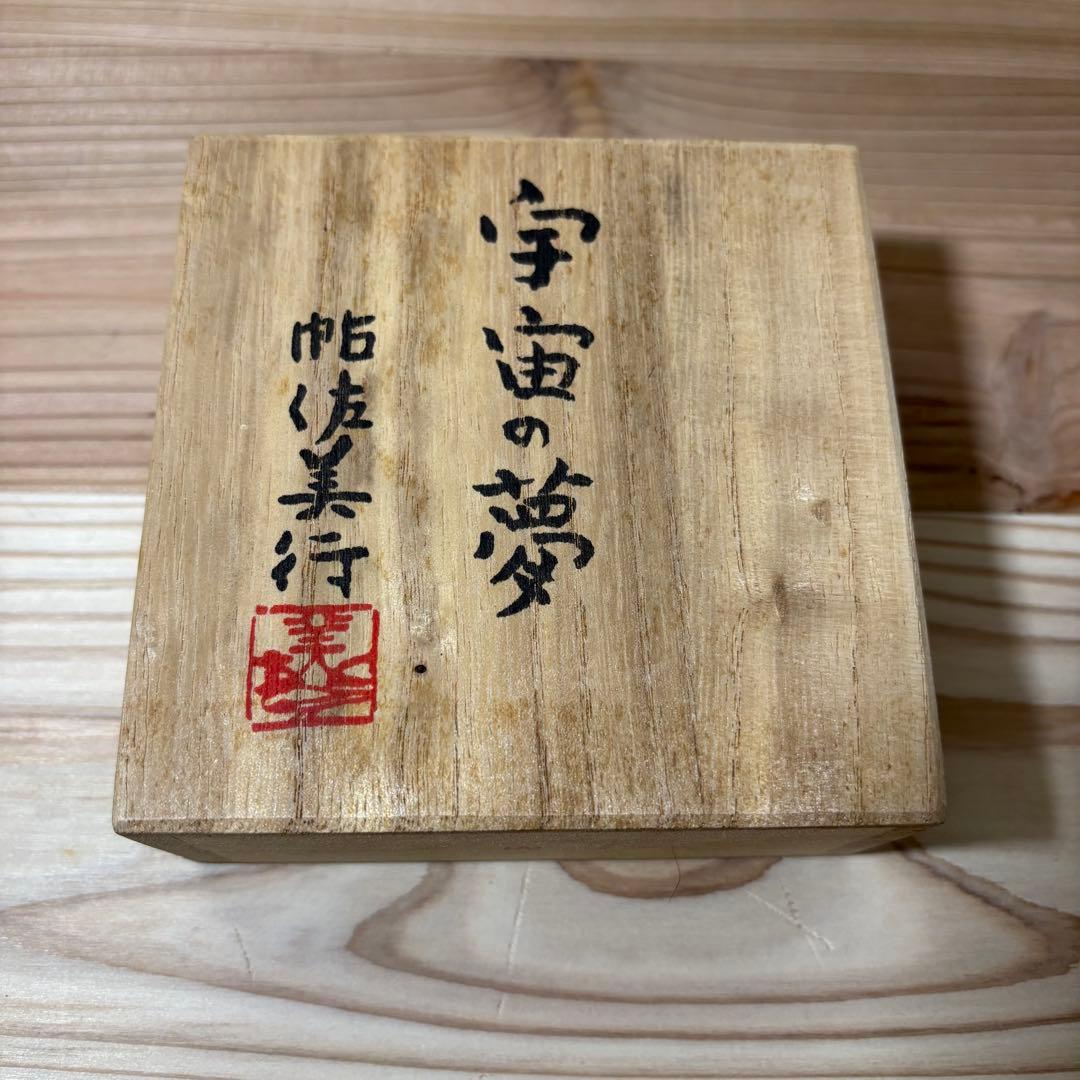 宇宙の夢
帖佐美行